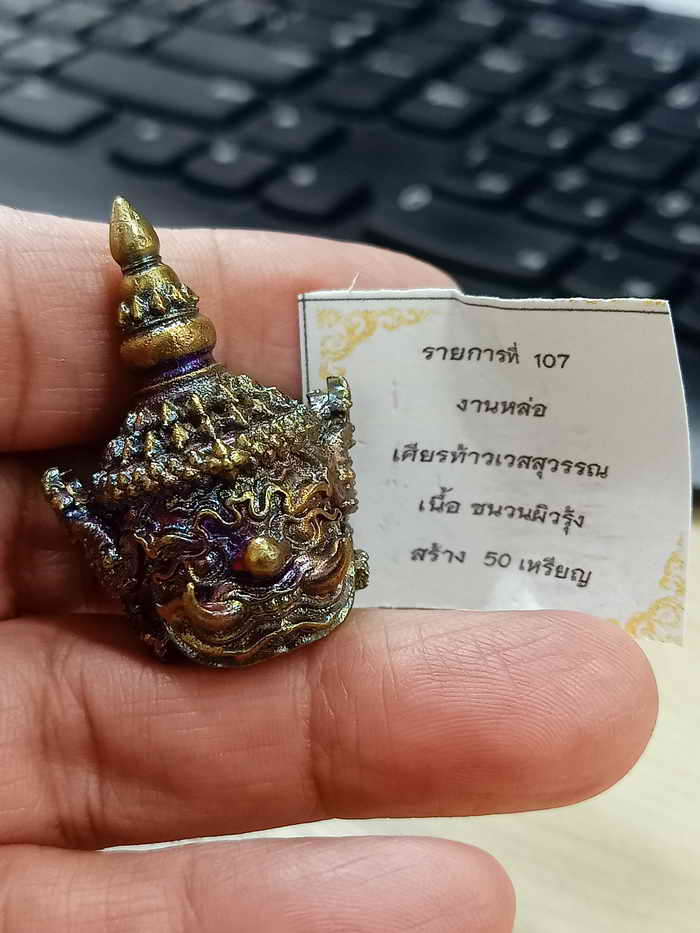 รายการที่ 107
งานหล่อ
เศียรท้าวเวสสุวรรณ
เนื้อ ชนวนผิวรุ้ง
สร้าง 50 เหรียญ